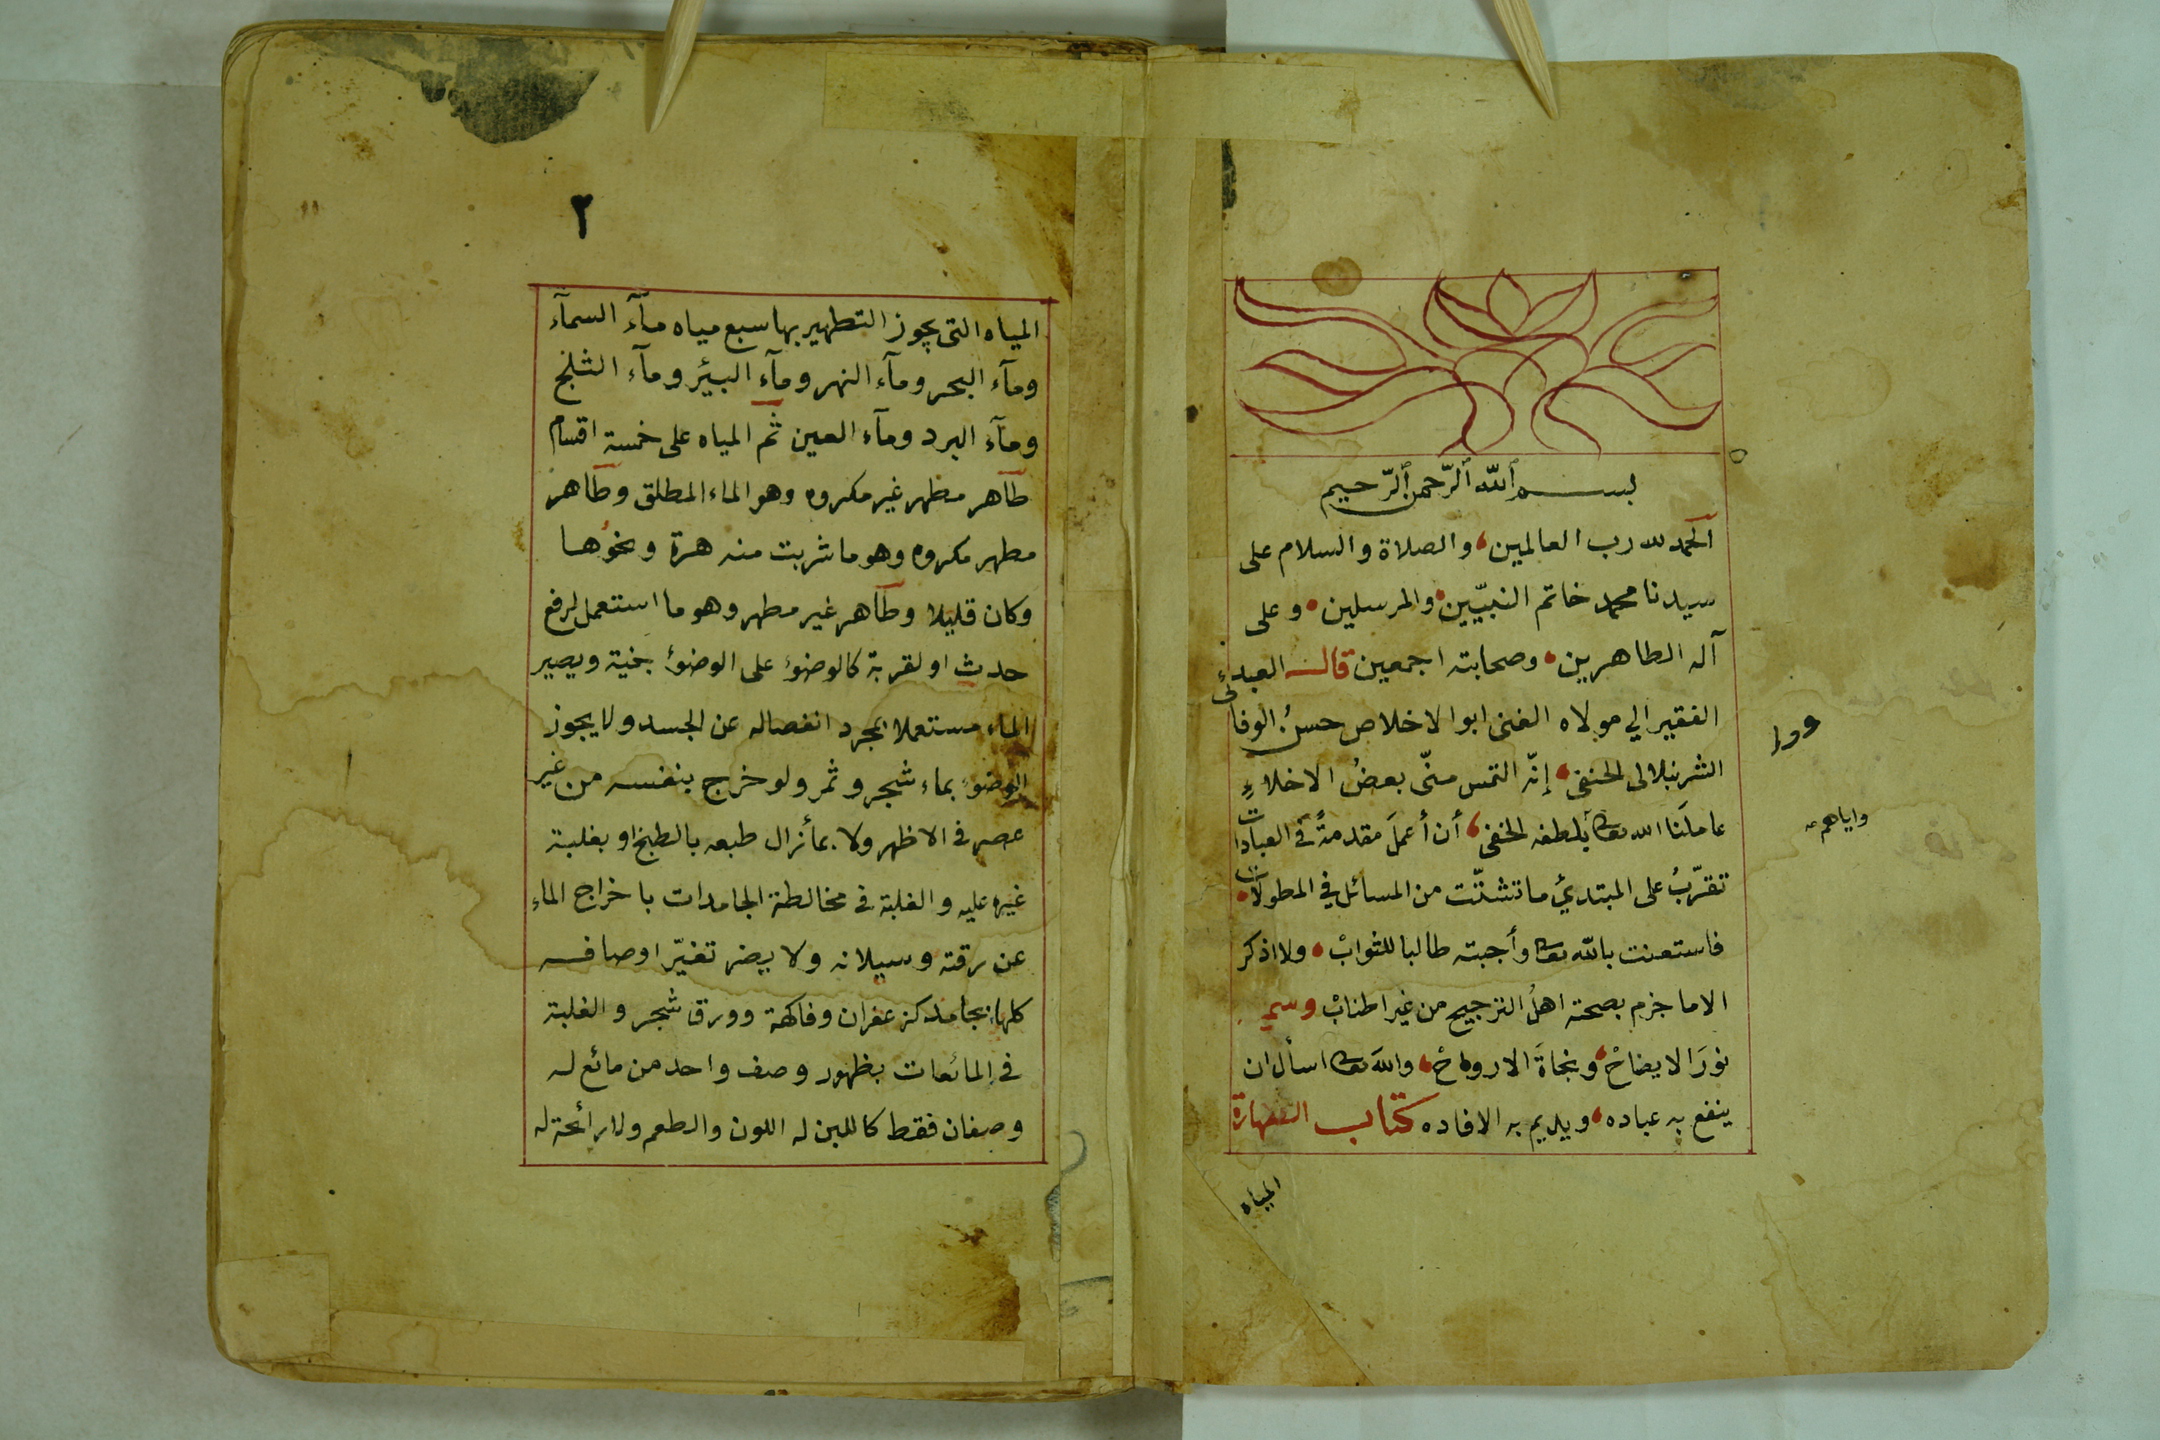 بسم الله الرحمن الرحيم
الحمد لله رب العالمين، والصلاة والسلام على
سيدنا محمد خاتم النبيّين والمرسلين وعلى
آله الطاهرين وصحابته اجمعين قال العبد
الفقير الي مولاه الغنى ابوا الاخلاص حسنُ الوفائى
الشرنبلالى الحنفى، إنّه التمس منّى بعضُ الاخلاءِ
عاملَنا الله تعالى بلطفه الخفى، أن أعملَ مقدمةً فى العبادات
واياهم
تقرّبُ على المبتدئ ما تشتّت من المسائل في المطولات
فاستعنت بالله تعالى وأجبته طالبا للثوابْ ولا اذكر
الا ما جزم بصحته اهلُ الترجيح من غير اطنابْ وسمي
نورَ الايضاحْ، ونجاةَ الارواحْ، والله تعالى اسأل ان
ينفع به عباده، ويديم به الافاده كتاب الطهارة
المياه
٢
المياه التى يجوز التطهير بها سبع مياه مآء السمآء
ومآء البحر ومآء النهر ومآء البئر ومآء الثلج
ومآء البرد ومآء العين ثم المياه على خمسة اقسام
طاهر مطهر غير مكروه وهو الماء المطلق وطاهر
مطهر مكروه وهو ما شربت منه هرة ونحوها
وكان قليلا وطاهر غير مطهر وهو ما استعمل لرفع
حدث او لقربة كالوضوء على الوضوء بنية ويصير
الماء مستعملا بمجرد انفصاله عن الجسد ولا يجوز
الوضوء بماء شجر وثمر ولو خرج بنفسه من غير
عصر فى الاظهر ولا بما زال طبعه بالطبخ او بغلبة
غيره عليه والغلبة فى مخالطة الجامدات با خراج الماء
عن رقته وسيلانه ولا يضر تغيّر اوصافه
كلها بجامد كزعفران وفاكهة وورق شجر والغلبة
فى المائعات بظهور وصف واحد من مائع له
وصفان فقط كاللبن له اللون والطعم ولا رائحة له